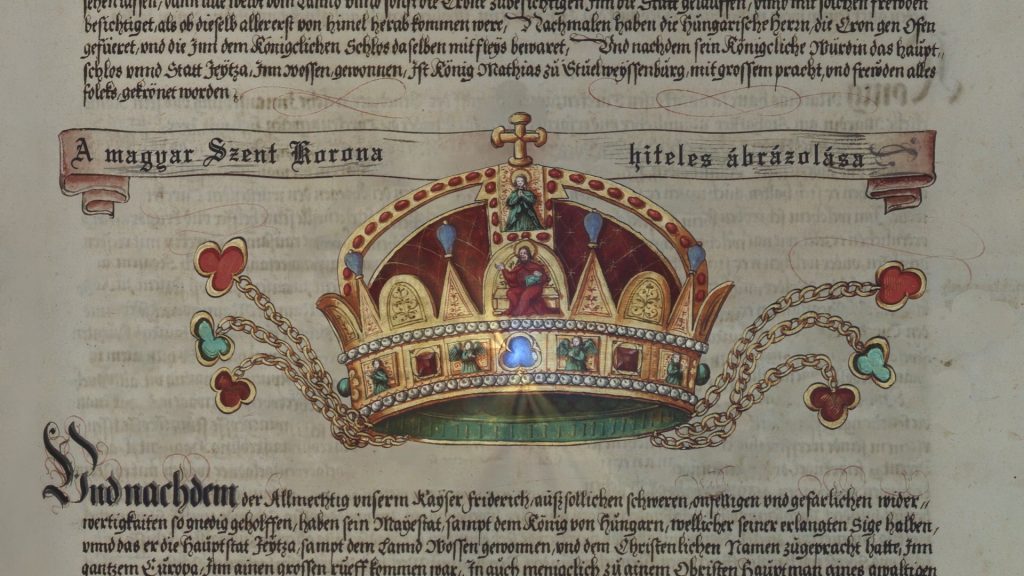 sehen lassen, dann alle welt vom Lannd vnnd sonst die Crone zubesichtigen Inn die Statt gelauffen, vnnd mit solchen freuden
besichtiget, als ob dieselb allererst von himel herab komen were, Nachmalen haben die Hungarische Herrn, die Cron gen Ofen
gefueret, vnd die Inn dem Königclichen Schlos daselben mit fleys bewaret, Vnd nachdem sein Königcliche Würdin das haupt,
schlos vnnd Statt Jeytza, Inn Wossen, gewonnen, Ist König Mathias zu Stuelweyssenburg, mit grossem pracht, vnd frewden alles
folcks, gekrönet worden.
A magyar Szent Korona hiteles ábrázolása
Vnd nachdem der Allmechtig vnserm Kayser friderich, auß sollichen schweren, onselligen vnd gefarlichen wider,,
wertigkaiten so gnedig geholffen, haben sein Mayestat, sampt dem König von Hungarn, wellicher seiner erlangten Sige halben,
vnnd das er die Hauptstat Jeytza, sampt dem Lannd Wossen gewonnen, vnd dem Christenlichen Namen zugepracht hatte, Inn
gantzem Europa, Inn ainen grossen rueff kommen war, In auch menigclich zu ainem Obristen Hauptman aines gwaltigen